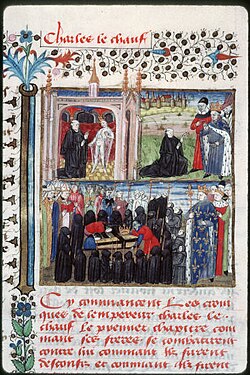 Charles le chauf
Cy commancent Les croni
ques de lempereur charles le
chauf Le premier chapitre com
mant ses freres se combatirent
contre lui commant ilz furent
desconfis et commant ilz firent